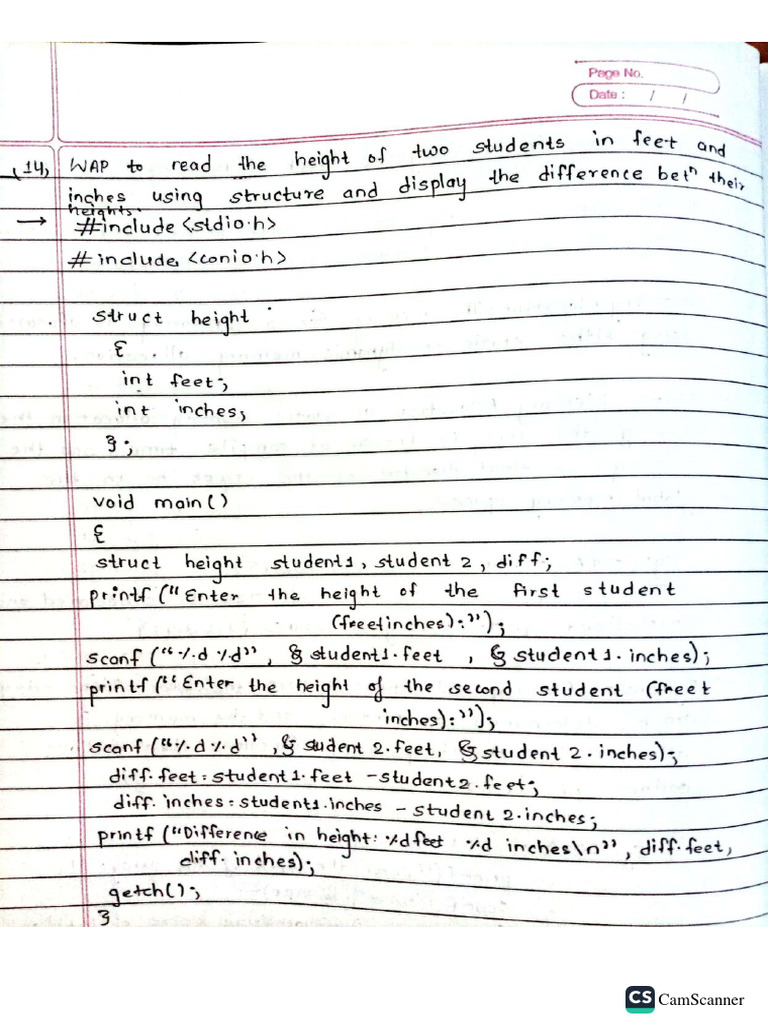 Page No.
Date : / /
(14) WAP to read the height of two students in feet and
inches using structure and display the difference betⁿ their
heights.
→ #include <stdio.h>
#include <conio.h>
struct height
{
int feet;
int inches;
};
void main()
{
struct height student1, student 2, diff;
printf ("Enter the height of the first student
(freetinches):");
scanf ("%d %d", & student1.feet , & student1.inches);
printf ("Enter the height of the second student (freet
inches):");
scanf ("%d %d", & student 2.feet, & student 2.inches);
diff.feet = student1.feet - student2.feet;
diff.inches = student1.inches - student 2.inches;
printf ("Difference in height: %d feet %d inches\n", diff.feet,
diff.inches);
getch();
}
CS CamScanner